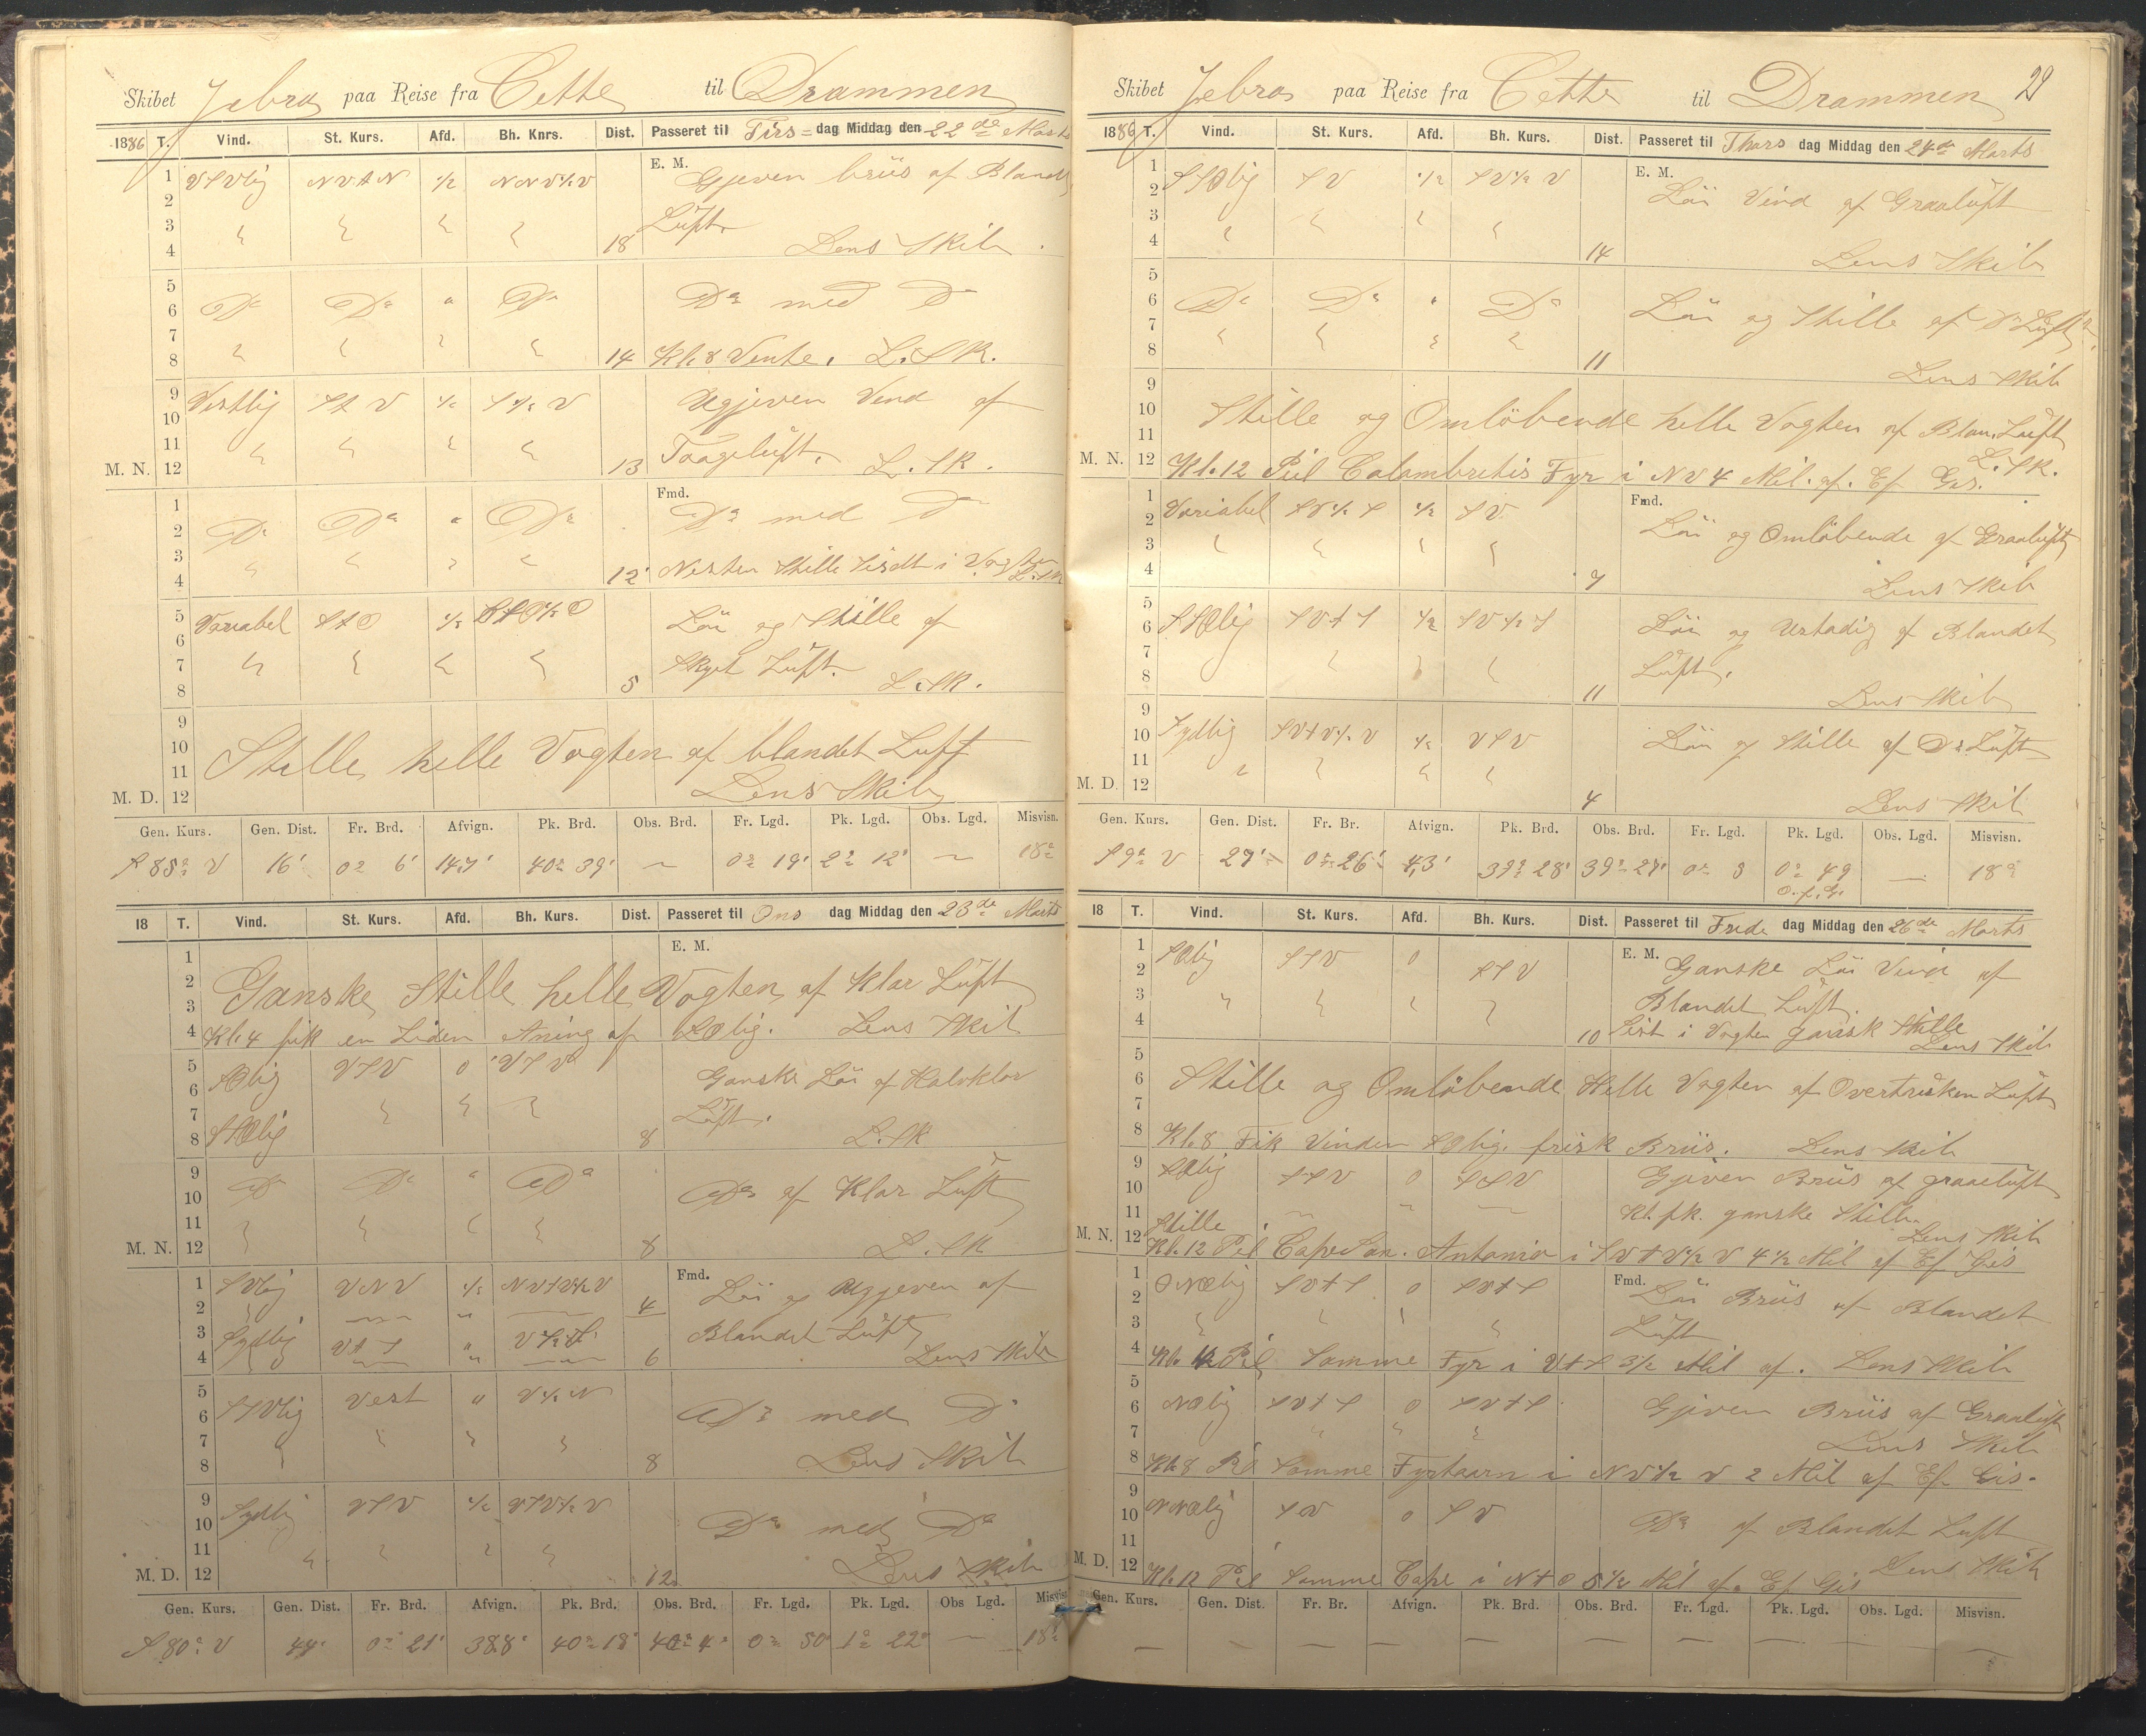 Skibet Zebra paa Reise fra Cette til Drammen
1886 T. Vind. St. Kurs. Afd. Bh. Knrs. Dist. Passeret til Tirs= dag Middag den 22de Marts
E. M.
1 VSVlig NVtN ½ NNV½V Gjeven briis af Blandt
2
3 Luft.
4 18 Lens Skib.
5
6 Do Do " Do Do med Do
7
8 14 Kl. 8 Vente. L. Sk.
9 Vestlig StV ½ S½V Ugjeven Vind af
10
11 Taageluft.
M. N. 12 13 L. Sk.
Fmd.
1
2 Do Do " Do Do med Do
3 Nesten Stille Sidst i Vagten
4 12 L. Sk
5 Variabel StO ½ Löi og Stille af
6
7 Skyet Luft.
8 5 L. Sk.
9
10 Stille helle Vagten af blandet Luft
11
M. D. 12 Lens Skib
Gen. Kurs. Gen. Dist. Fr. Brd. Afvign. Pk. Brd. Obs. Brd. Fr. Lgd. Pk. Lgd. Obs. Lgd. Misvisn.
S 88° V 16' 0° 6' 14,7' 40° 39' — 0° 19' 2° 12' — 18°
18 T. Vind. St. Kurs. Afd. Bh. Kurs. Dist. Passeret til Ons dag Middag den 23de Marts
E. M.
1
2 Ganske Stille helle Vagten af Klar Luft
3
4 Kl. 4 fik en Liden Aning af SOlig. Lens Skib
5 SOlig VSV 0 VSV Ganske Löi af Halvklar
6
7 Luft.
8 SSOlig 8 L. Sk
9 Do Do " Do Do af Klar Luft
10
11
M. N. 12 8 L. Sk
Fmd.
1 SVlig VNV ½ NVtV½V Löi og Ugjeven af
2 4
3 Sydlig VtS " Blandet Luft
4 6 Lens Skib
5 SSVlig Vest " V½N
6 Do med Do
7
8 8 Lens Skib
9 Sydlig VSV ½ VSV½V
10 Do med Do
11
M. D. 12 12 Lens Skib
Gen. Kurs. Gen. Dist. Fr. Brd. Afvign. Pk. Brd. Obs. Brd. Fr. Lgd. Pk. Lgd. Obs Lgd. Misvisn.
S 80° V 44' 0° 21' 38,8' 40° 18' 40° 4' 0° 50' 1° 22' — 18°
29
Skibet Zebra paa Reise fra Cette til Drammen
1886 T. Vind. St. Kurs. Afd. Bh. Kurs. Dist. Passeret til Thors dag Middag den 24de Marts
E. M.
1 SSOlig SV ½ SV½V Löi Vind af Graaluft
2
3
4 14 Lens Skib
5
6 Do Do " Do Löi og Stille af Do Luft
7
8 11 Lens Skib
9
10 Stille og Omlöbende helle Vagten af Blan. Luft
11 L. Sk.
M. N. 12 Kl. 12 Peil Calambretis Fyr i NV 4 Mil. af. Ef Gis.
Fmd.
1 Variabel SV½S ½ SV
2 Löi og Omlöbende af Graaluft
3
4 7 Lens Skib
5
6 SSOlig SVtS ½ SV½S Löi og Ustadig af Blandet
7 Luft.
8 11 Lens Skib
9
10 Sydlig SVtV½V ½ VSV Löi og Stille af Do Luft
11
M. D. 12 4 Lens Skib
Gen. Kurs. Gen. Dist. Fr. Br. Afvign. Pk. Brd. Obs. Brd. Fr. Lgd. Pk. Lgd. Obs. Lgd. Misvisn.
S 9° V 27' 0° 26' 4,3' 39° 28' 39° 27' 0° 3 0° 49 — 18°
O. f. G.
18 T. Vind. St. Kurs. Afd. Bh. Kurs. Dist. Passeret til Frede dag Middag den 26de Marts
E. M.
1 SOlig SSV 0 SSV Ganske Löi Vind af
2
3 Blandet Luft.
4 10 Sist i Vagten gansk Stille Lens Skib
5
6 Stille og Omlöbende Helle Vagten af Overtrukken Luft
7
8 Kl. 8 Fik Vinden SOlig. frisk Briis. Lens Skib
9 SOlig SSV 0 SSV Gjeven Briis af graaeluft
10
11 Kl. fk. ganske Stille.
Stille Lens Skib
M. N. 12 Kl. 12 Peil Cape San. Antonio i SVtV½V 4½ Mil af Ef Gis
Fmd.
1 ONOlig SVtS 0 SVtS Löi Briis af Blandet
2
3 Luft
4 Kl. 4 Peil Samme Fyr i VtS 3½ Mil af. Lens Skib
5
6 NOlig SVtS 0 SVtS Gjeven Briis af Graaluft
7 Lens Skib
8 Kl. 8 Peil Samme Fyrtaarn i NV½V 2 Mil af Ef Gis.
9
10 NNOlig SV 0 SV Do af Blandet Luft
11 Lens Skib
M. D. 12 Kl. 12 Peil Samme Cape i NtO 5½ Mil af. Ef Gis
Gen. Kurs. Gen. Dist. Fr. Br. Afvign. Pk. Brd. Obs. Brd. Fr. Lgd. Pk. Lgd. Obs. Lgd. Misvisn.
— — — — — — — — — —